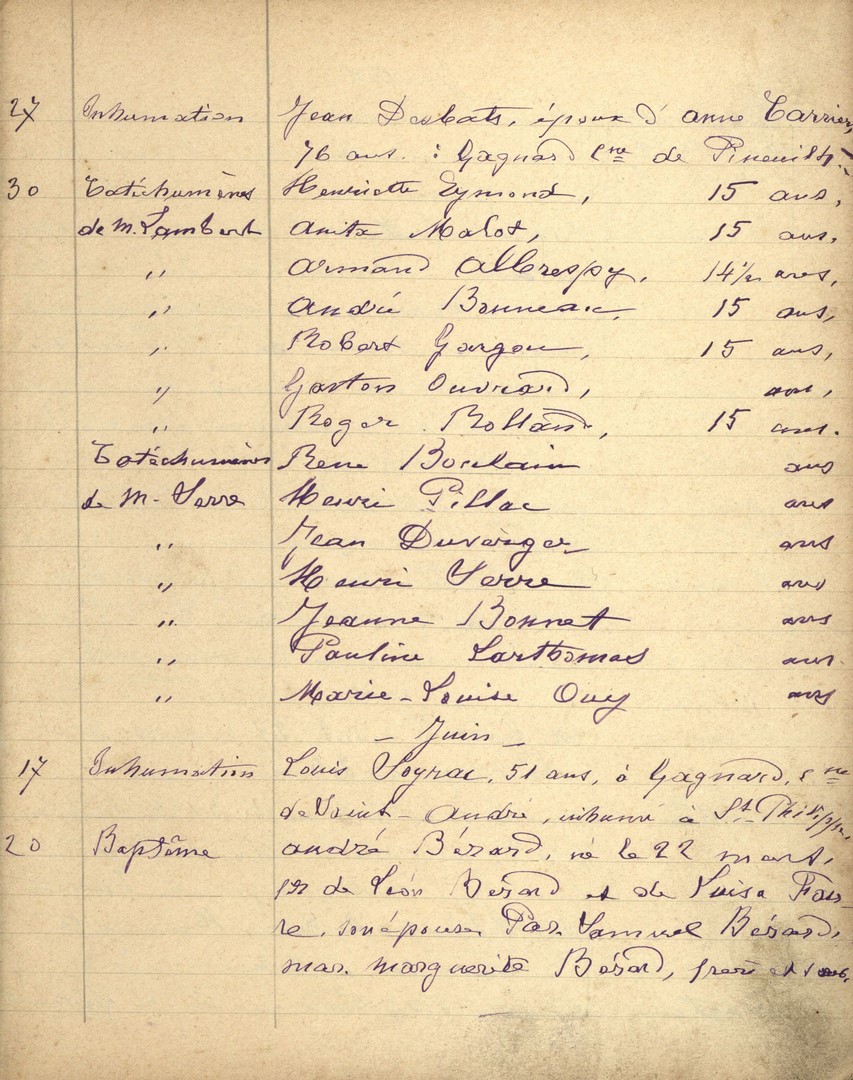 27 Inhumation Jean Desbats, époux d'anne Carrier,
76 ans. : Gagnard Cne de Pineuilh.
30 Catéchumènes Henriette Eymond, 15 ans,
de M. Lambert Anita Malot, 15 ans,
" Armand Albrespy, 14 1/2 ans,
" André Bonneau, 15 ans,
" Robert Gorgou, 15 ans,
" Gaston Ouvrard, ans,
" Roger Rolland, 15 ans.
Catéchumènes Rene Bouclain ans
de M. Serre Henri Pillac ans
" Jean Duverger ans
" Henri Serre ans
" Jeanne Bonnet ans
" Pauline Larthomas ans
" Marie-Louise Ouy ans
- Juin -
17 Inhumation Louis Soyrac, 51 ans, à Gagnard, Cne
de Saint-André, inhumé à St-Philippe.
20 Baptême André Bérard, né le 22 mars,
de Léon Bérard et de Luisa Fau-
re, son épouse. Par. Samuel Bérard,
mar. Marguerite Bérard, frère et